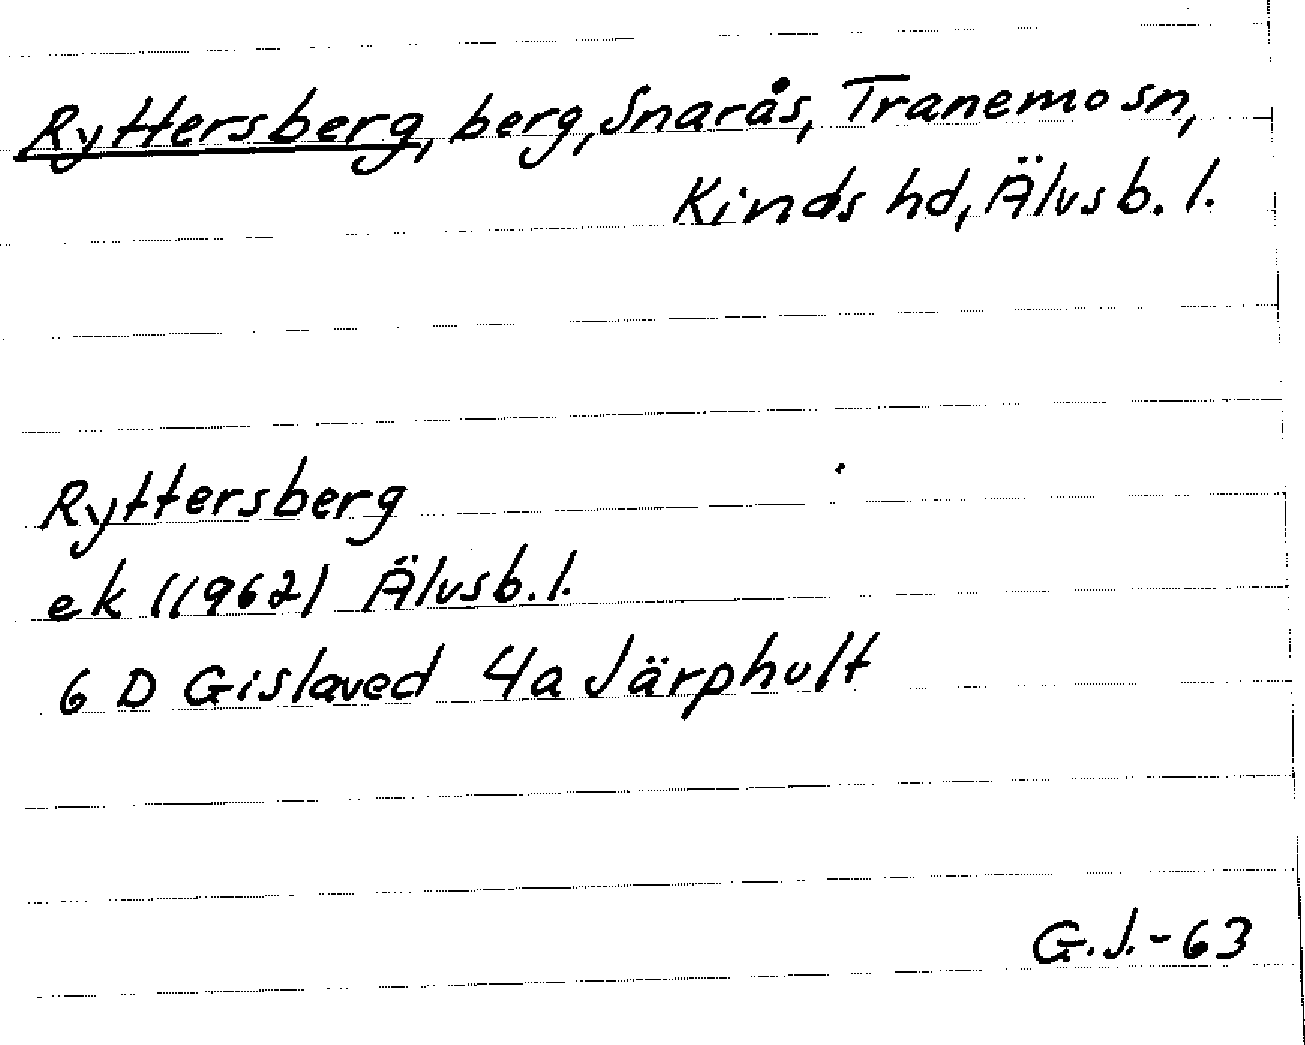 Ryttersberg, berg, Snarås, Tranemo sn,
Kinds hd, Älvsb. l.
Ryttersberg
ek (1962) Älvsb. l.
6 D Gislaved 4a Järphult
G.J.-63